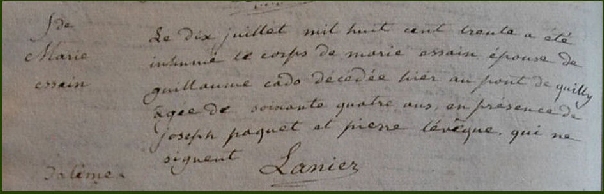 Sde
Marie
essain
Le dix juillet mil huit cent trente a été
inhumé le corps de marie assain épouse de
guillaume cado decedée hier au pont de quilly
agée de soixante quatre ans, en présence de
joseph paquet et pierre lévêque, qui ne
signent
Lanier